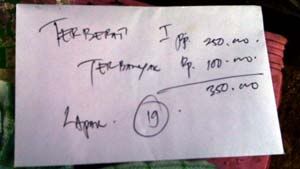 TERBERAT I Rp. 250.000
TERBANYAK Rp. 100.000
350.000
LAPAK. 19.